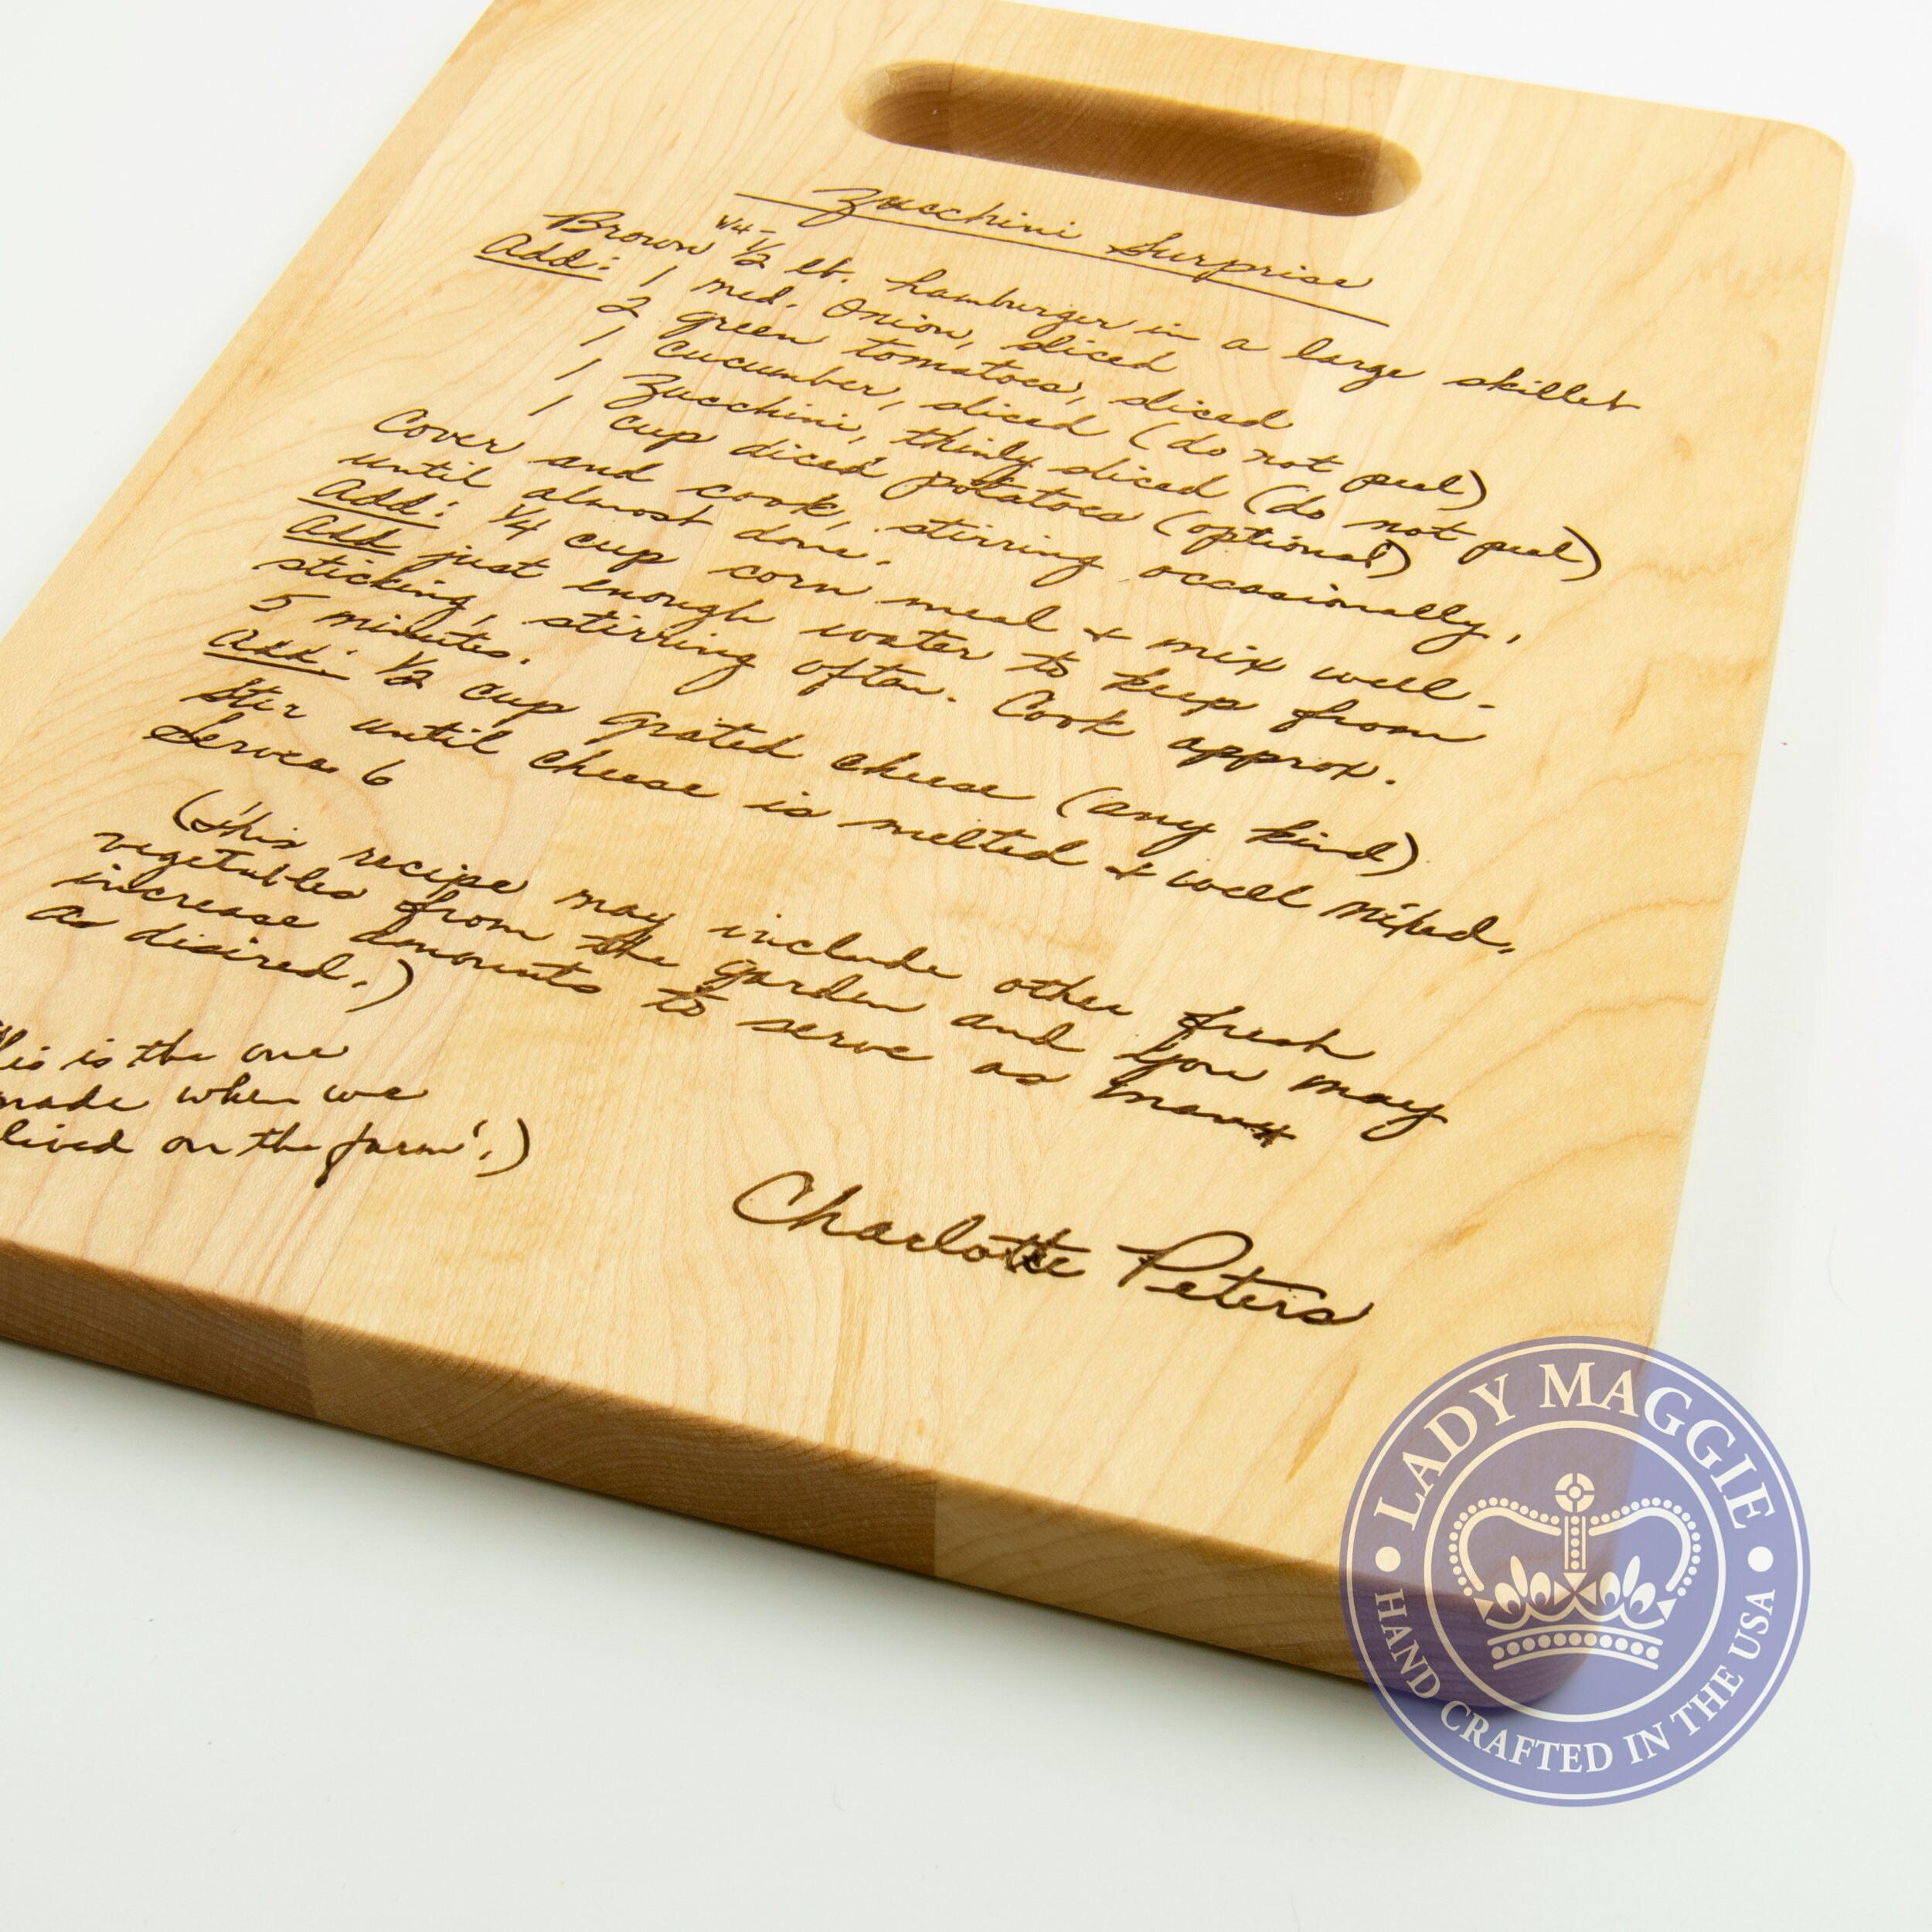 Zucchini Surprise
Brown 1/4-1/2 lb. hamburger in a large skillet
Add: 1 med. onion, sliced
2 green tomatoes, sliced
1 cucumber, sliced (do not peel)
1 Zucchini, thinly sliced (do not peel)
1 cup diced potatoes (optional)
Cover and cook, stirring occasionally,
until almost done.
Add: 1/4 cup corn meal & mix well.
Add just enough water to keep from
sticking, stirring often. Cook approx.
5 minutes.
Add: 1/2 cup grated cheese (any kind)
Stir until cheese is melted & well mixed.
Serves 6
(This recipe may include other fresh
vegetables from the garden and you may
increase amounts to serve as many
as desired.)
his is the one
made when we
lived on the farm'.)
Charlotte Peters
LADY MAGGIE
HAND CRAFTED IN THE USA